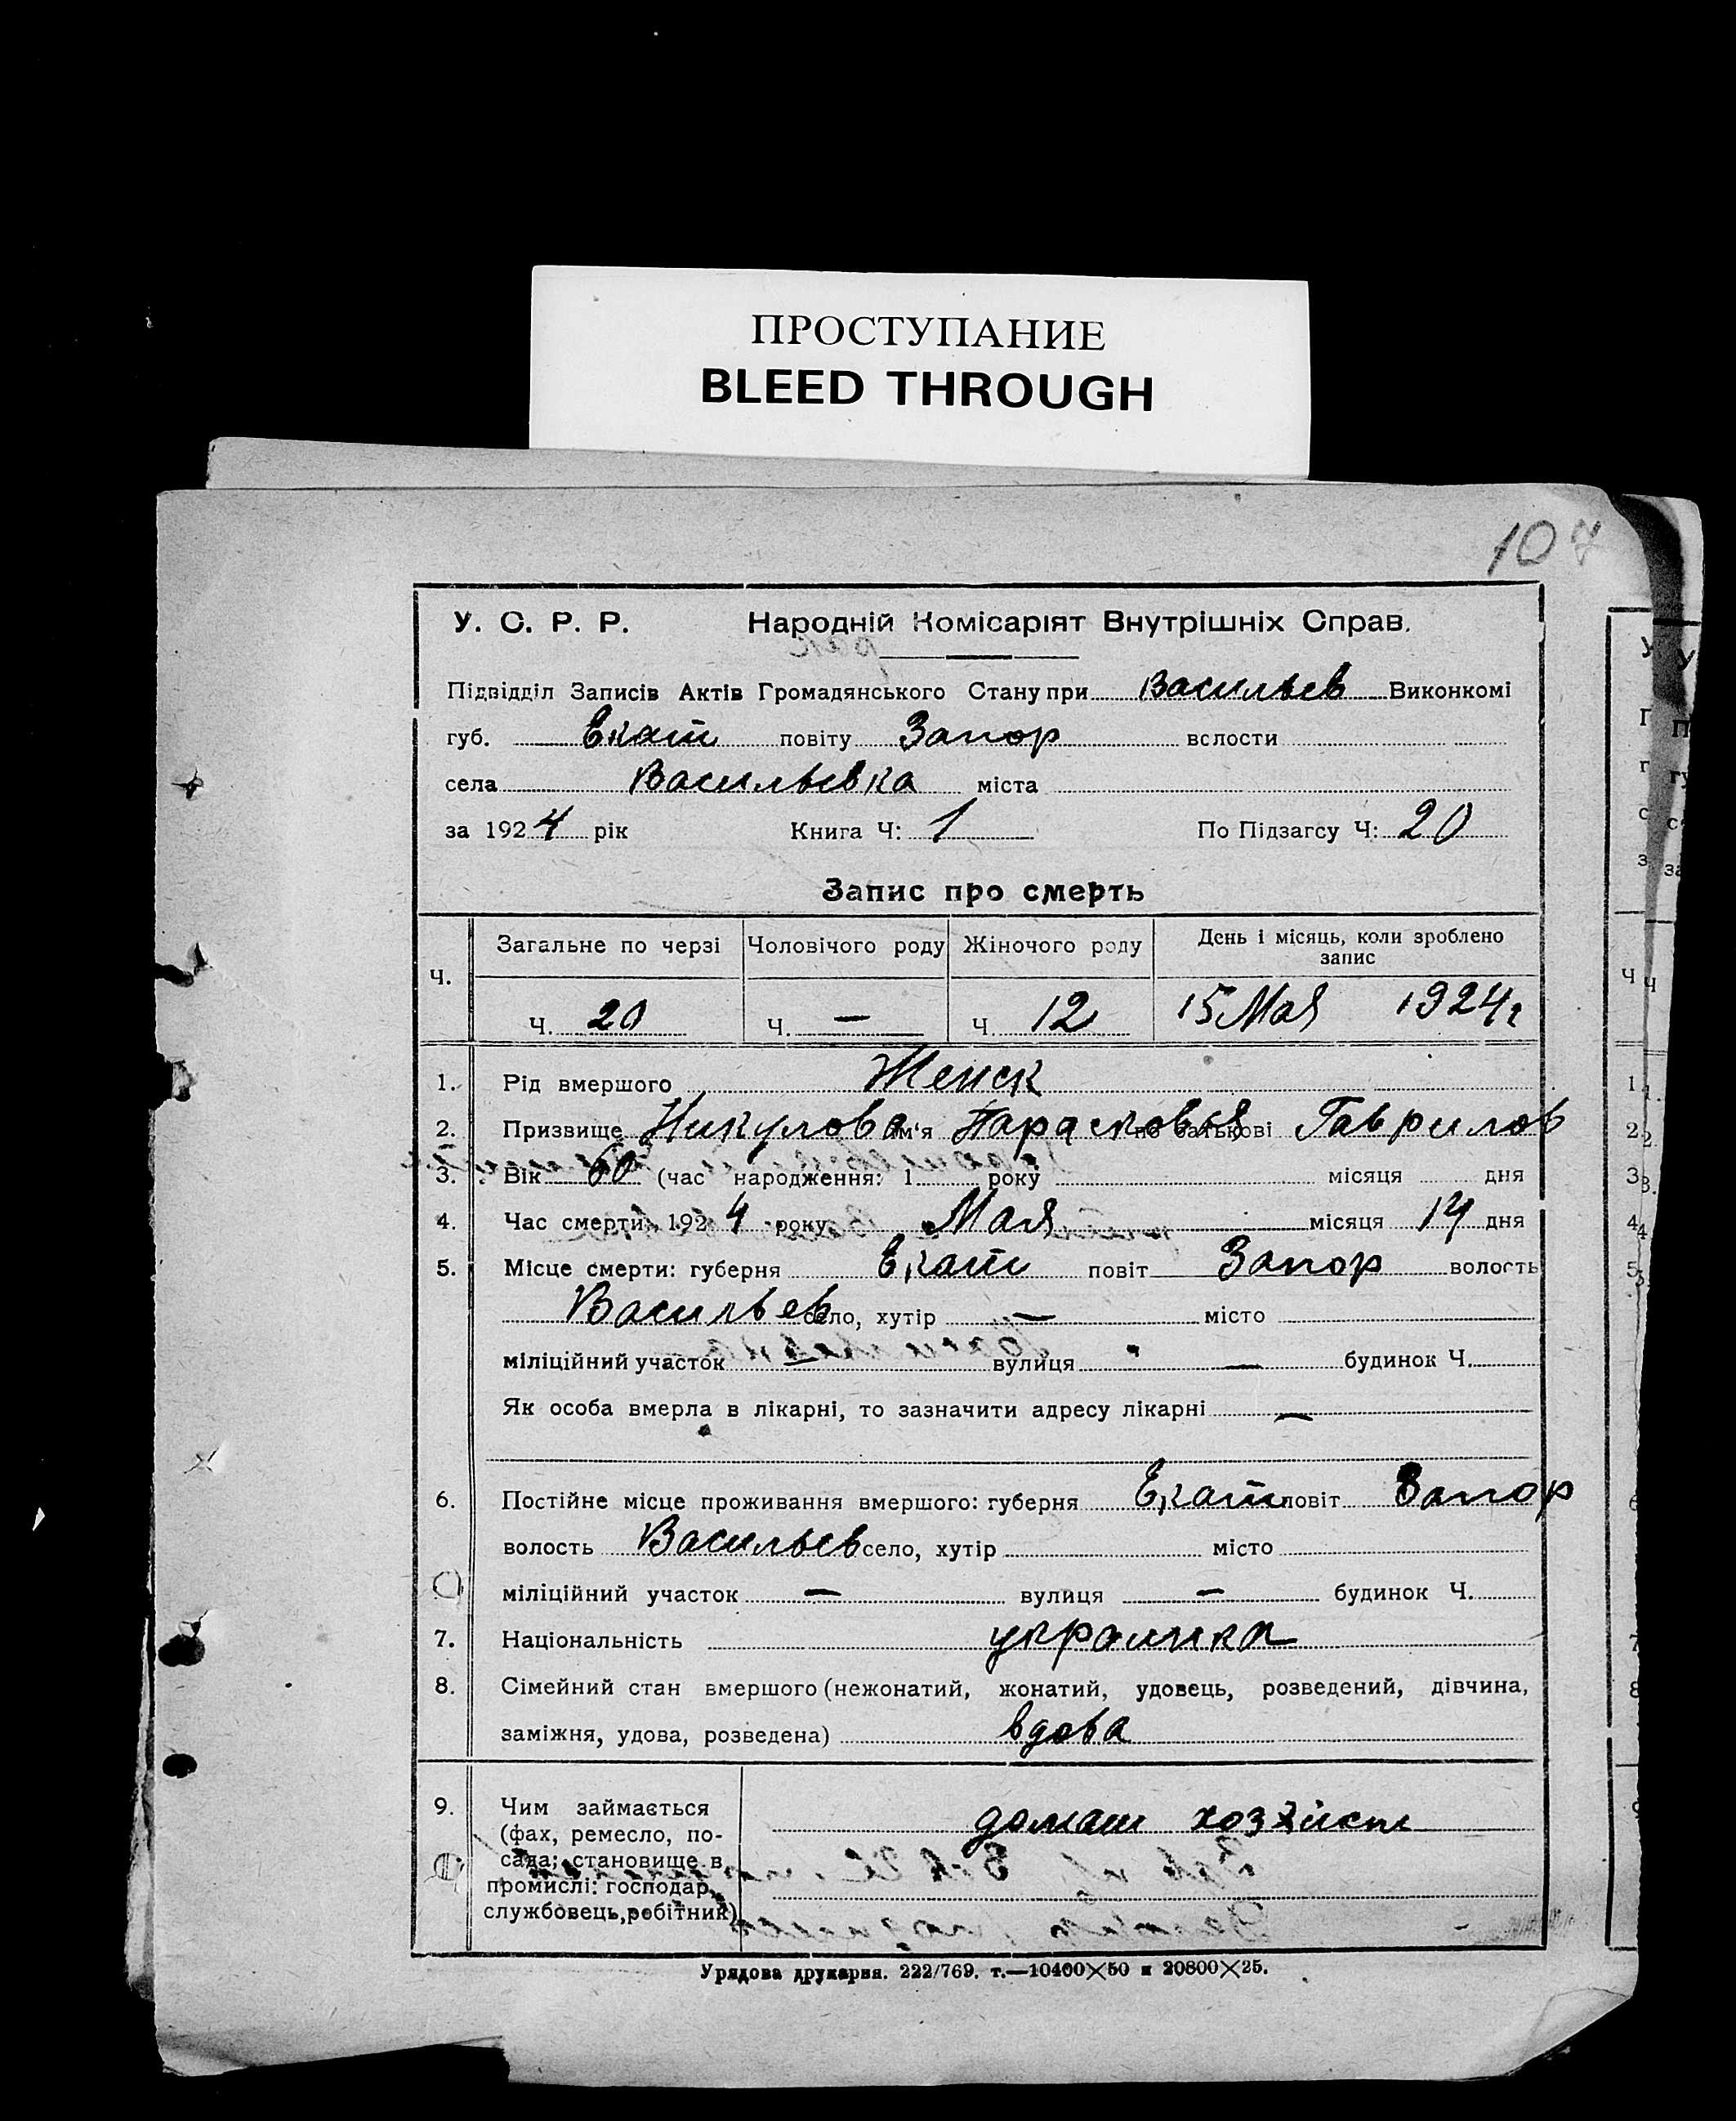 ПРОСТУПАНИЕ
BLEED THROUGH
107
У. С. Р. Р. Народній Комісаріят Внутрішніх Справ.
Підвідділ Записів Актів Громадянського Стану при Васильев Виконкомі
губ. Екат повіту Запор вслости
села Васильевка міста
за 1924 рік Книга Ч: 1 По Підзагсу Ч: 20
Запис про смерть
Ч. Загальне по черзі Чоловічого роду Жіночого роду День і місяць, коли зроблено запис
Ч. 20 Ч. — Ч. 12 15 Мая 1924 г
1. Рід вмершого Женск
2. Призвище Никулова ім'я Парасковья по батькові Гаврилов
3. Вік 60 (час народження: 1 року місяця дня
4. Час смерти: 1924 року Мая місяця 14 дня
5. Місце смерти: губерня Екат повіт Запор волость
Васильев село, хутір — місто
міліційний участок — вулиця — будинок Ч.
Як особа вмерла в лікарні, то зазначити адресу лікарні —
6. Постійне місце проживання вмершого: губерня Екат повіт Запор
волость Васильев село, хутір місто
міліційний участок — вулиця — будинок Ч.
7. Національність украинка
8. Сімейний стан вмершого (нежонатий, жонатий, удовець, розведений, дівчина,
заміжня, удова, розведена) вдова
9. Чим займається
(фах, ремесло, по-
сада; становище в
промислі: господар,
службовець, робітник)
домаш хозяйст
Урядова друкарня. 222/769. т.—10400×50 и 20800×25.